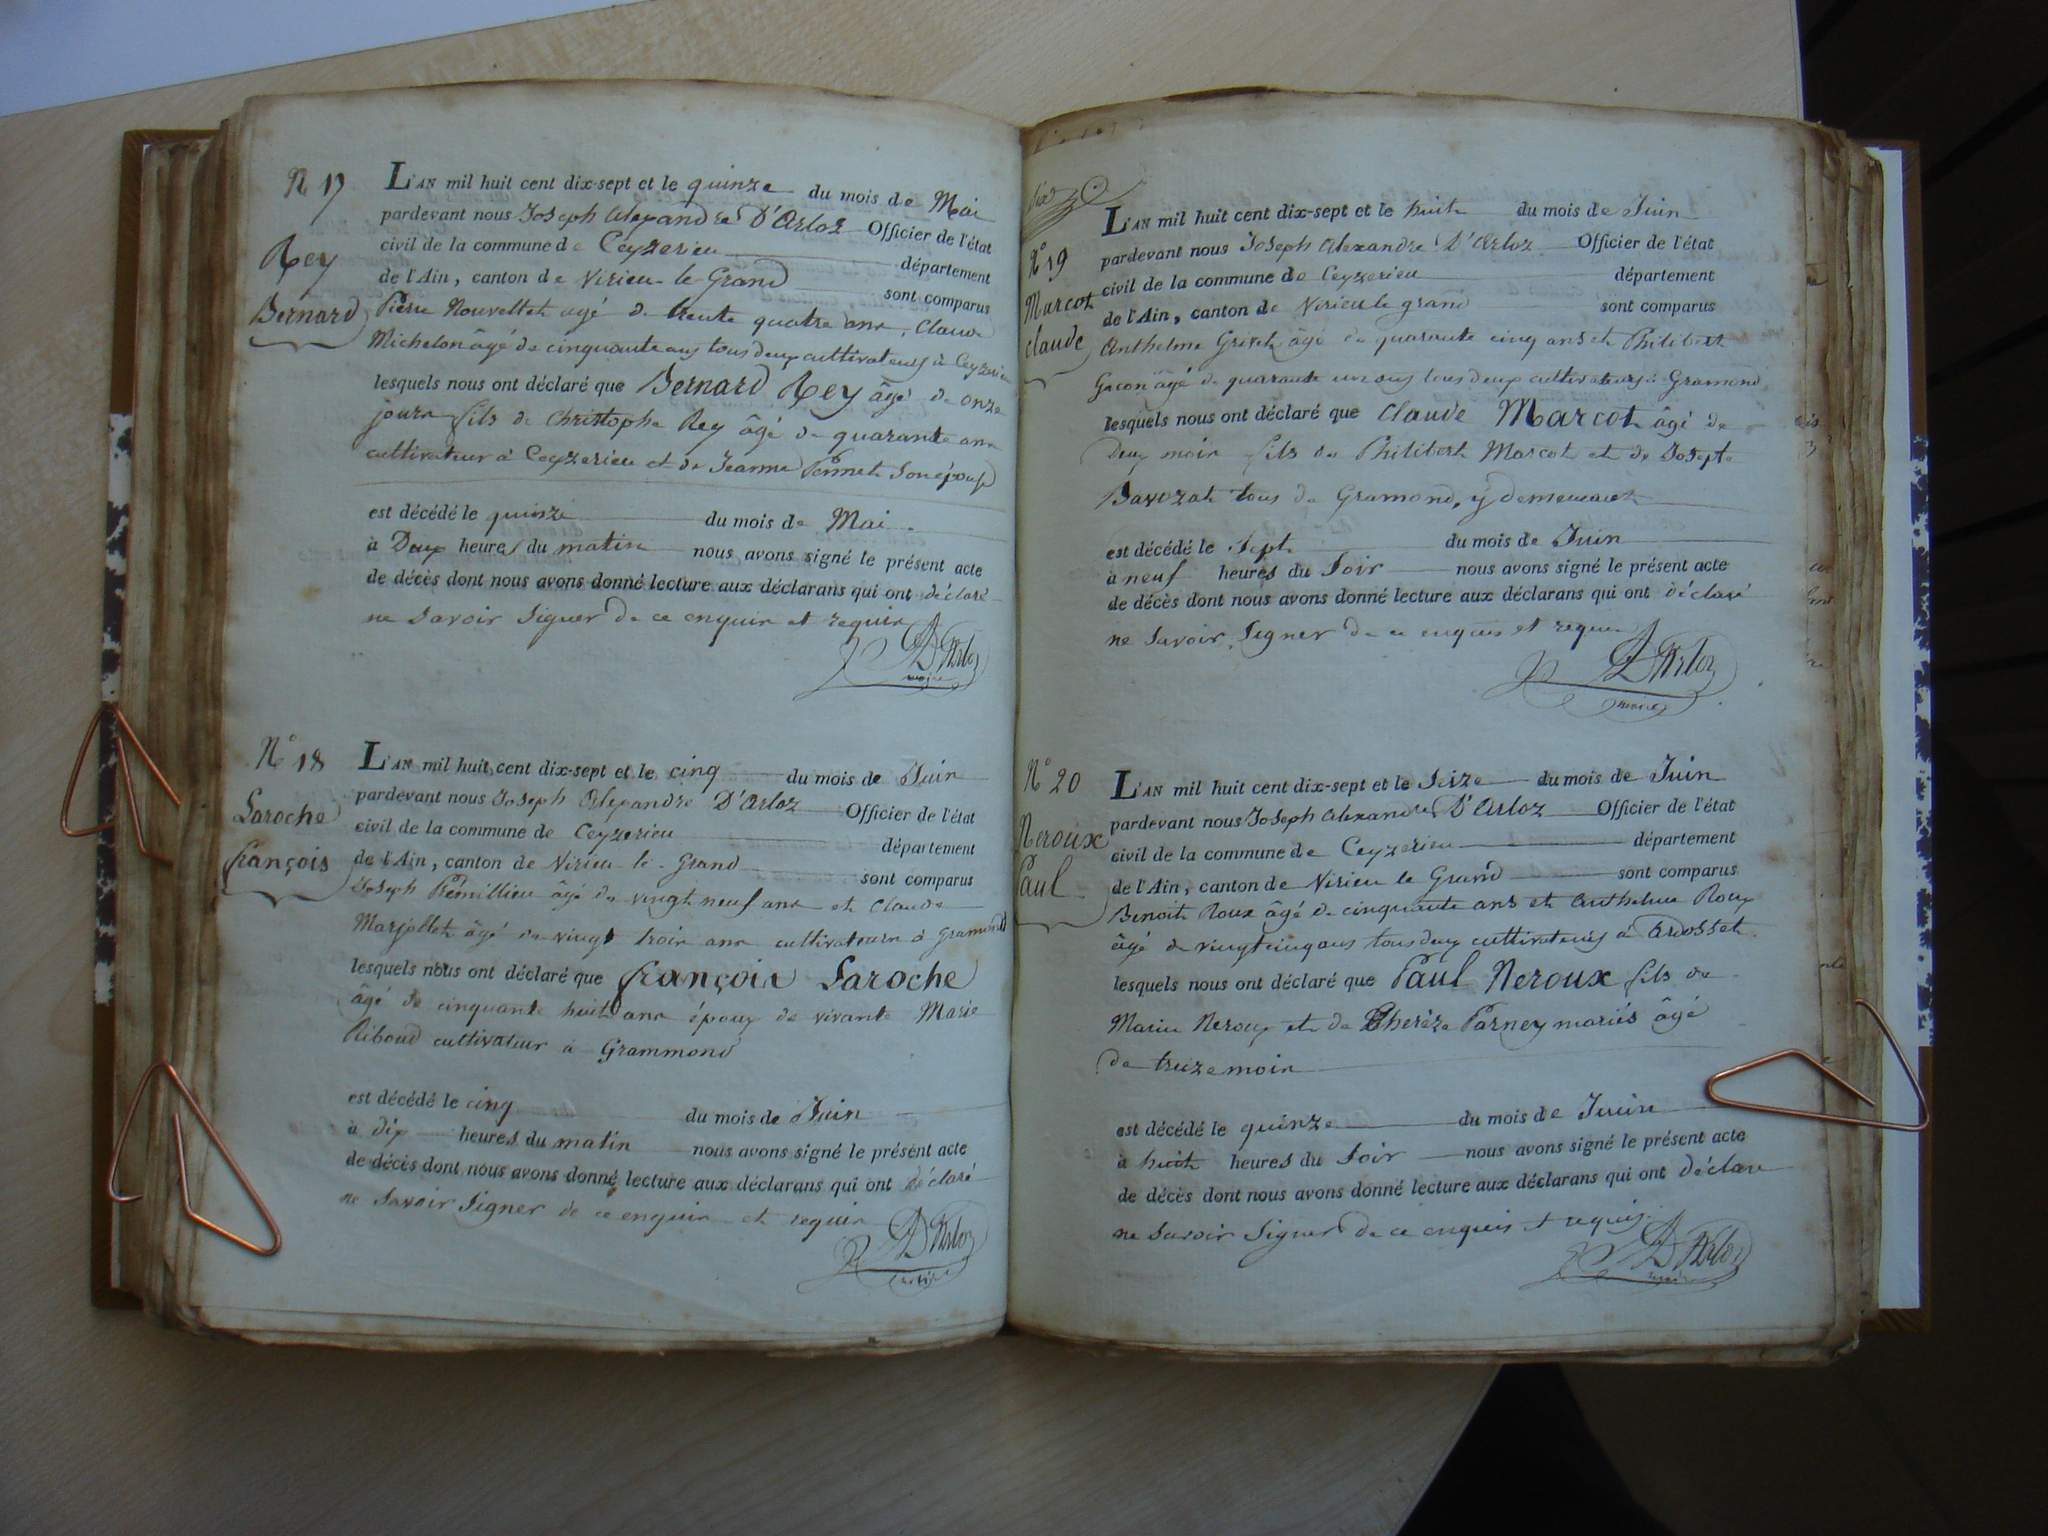 N 17
Rey
Bernard
L'AN mil huit cent dix-sept et le quinze du mois de Mai
pardevant nous Joseph Alexandre D'Arloz Officier de l'état
civil de la commune de Ceyzerieu département
de l'Ain, canton de Virieu le Grand sont comparus
Pierre Nouvellet agé de trente quatre ans, Claude
Michelon âgé de cinquante ans tous deux cultivateurs à Ceyzerieu
lesquels nous ont déclaré que Bernard Rey âgé de onze
jours fils de Christophe Rey âgé de quarante ans
cultivateur à Ceyzerieu et de Jeanne Pernet son épouse
est décédé le quinze du mois de Mai
à Deux heures du matin nous avons signé le présent acte
de décès dont nous avons donné lecture aux déclarans qui ont déclaré
ne savoir signer de ce enquis et requis
D'Arloz
maire
N° 18
Laroche
françois
L'AN mil huit cent dix-sept et le cinq du mois de Juin
pardevant nous Joseph Alexandre D'Arloz Officier de l'état
civil de la commune de Ceyzerieu département
de l'Ain, canton de Virieu le Grand sont comparus
Joseph Pémillieu âgé de vingt neuf ans et Claude
Marjollet âgé de vingt trois ans cultivateurs à Gramond
lesquels nous ont déclaré que françois Laroche
âgé de cinquante huit ans époux de vivante Marie
Riboud cultivateur à Grammond
est décédé le cinq du mois de Juin
à dix heures du matin nous avons signé le présent acte
de décès dont nous avons donné lecture aux déclarans qui ont déclaré
ne savoir signer de ce enquis et requis
D'Arloz
N° 19
Marcot
claude
L'AN mil huit cent dix-sept et le huit du mois de Juin
pardevant nous Joseph Alexandre D'Arloz Officier de l'état
civil de la commune de Ceyzerieu département
de l'Ain, canton de Virieu le grand sont comparus
Anthelme Grivet âgé de quarante cinq ans et Philibert
Gacon âgé de quarante un ans tous deux cultivateurs à Gramond
lesquels nous ont déclaré que Claude Marcot âgé de
Deux mois fils de Philibert Marcot et de Josepte
Davozat tous de Gramond, y demeurant
est décédé le sept du mois de Juin
à neuf heures du Soir nous avons signé le présent acte
de décès dont nous avons donné lecture aux déclarans qui ont déclaré
ne savoir signer de ce enquis et requis
D'Arloz
maire
N° 20
Neroux
Paul
L'AN mil huit cent dix-sept et le Seize du mois de Juin
pardevant nous Joseph Alexandre D'Arloz Officier de l'état
civil de la commune de Ceyzerieu département
de l'Ain, canton de Virieu le Grand sont comparus
Benoit Roux âgé de cinquante ans et Anthelme Roux
âgé de vingt cinq ans tous deux cultivateurs à Ardosset
lesquels nous ont déclaré que Paul Neroux fils de
Marin Neroux et de Therèze Parney mariés âgé
de treize mois
est décédé le quinze du mois de Juin
à huit heures du Soir nous avons signé le présent acte
de décès dont nous avons donné lecture aux déclarans qui ont déclaré
ne savoir signer de ce enquis et requis
D'Arloz